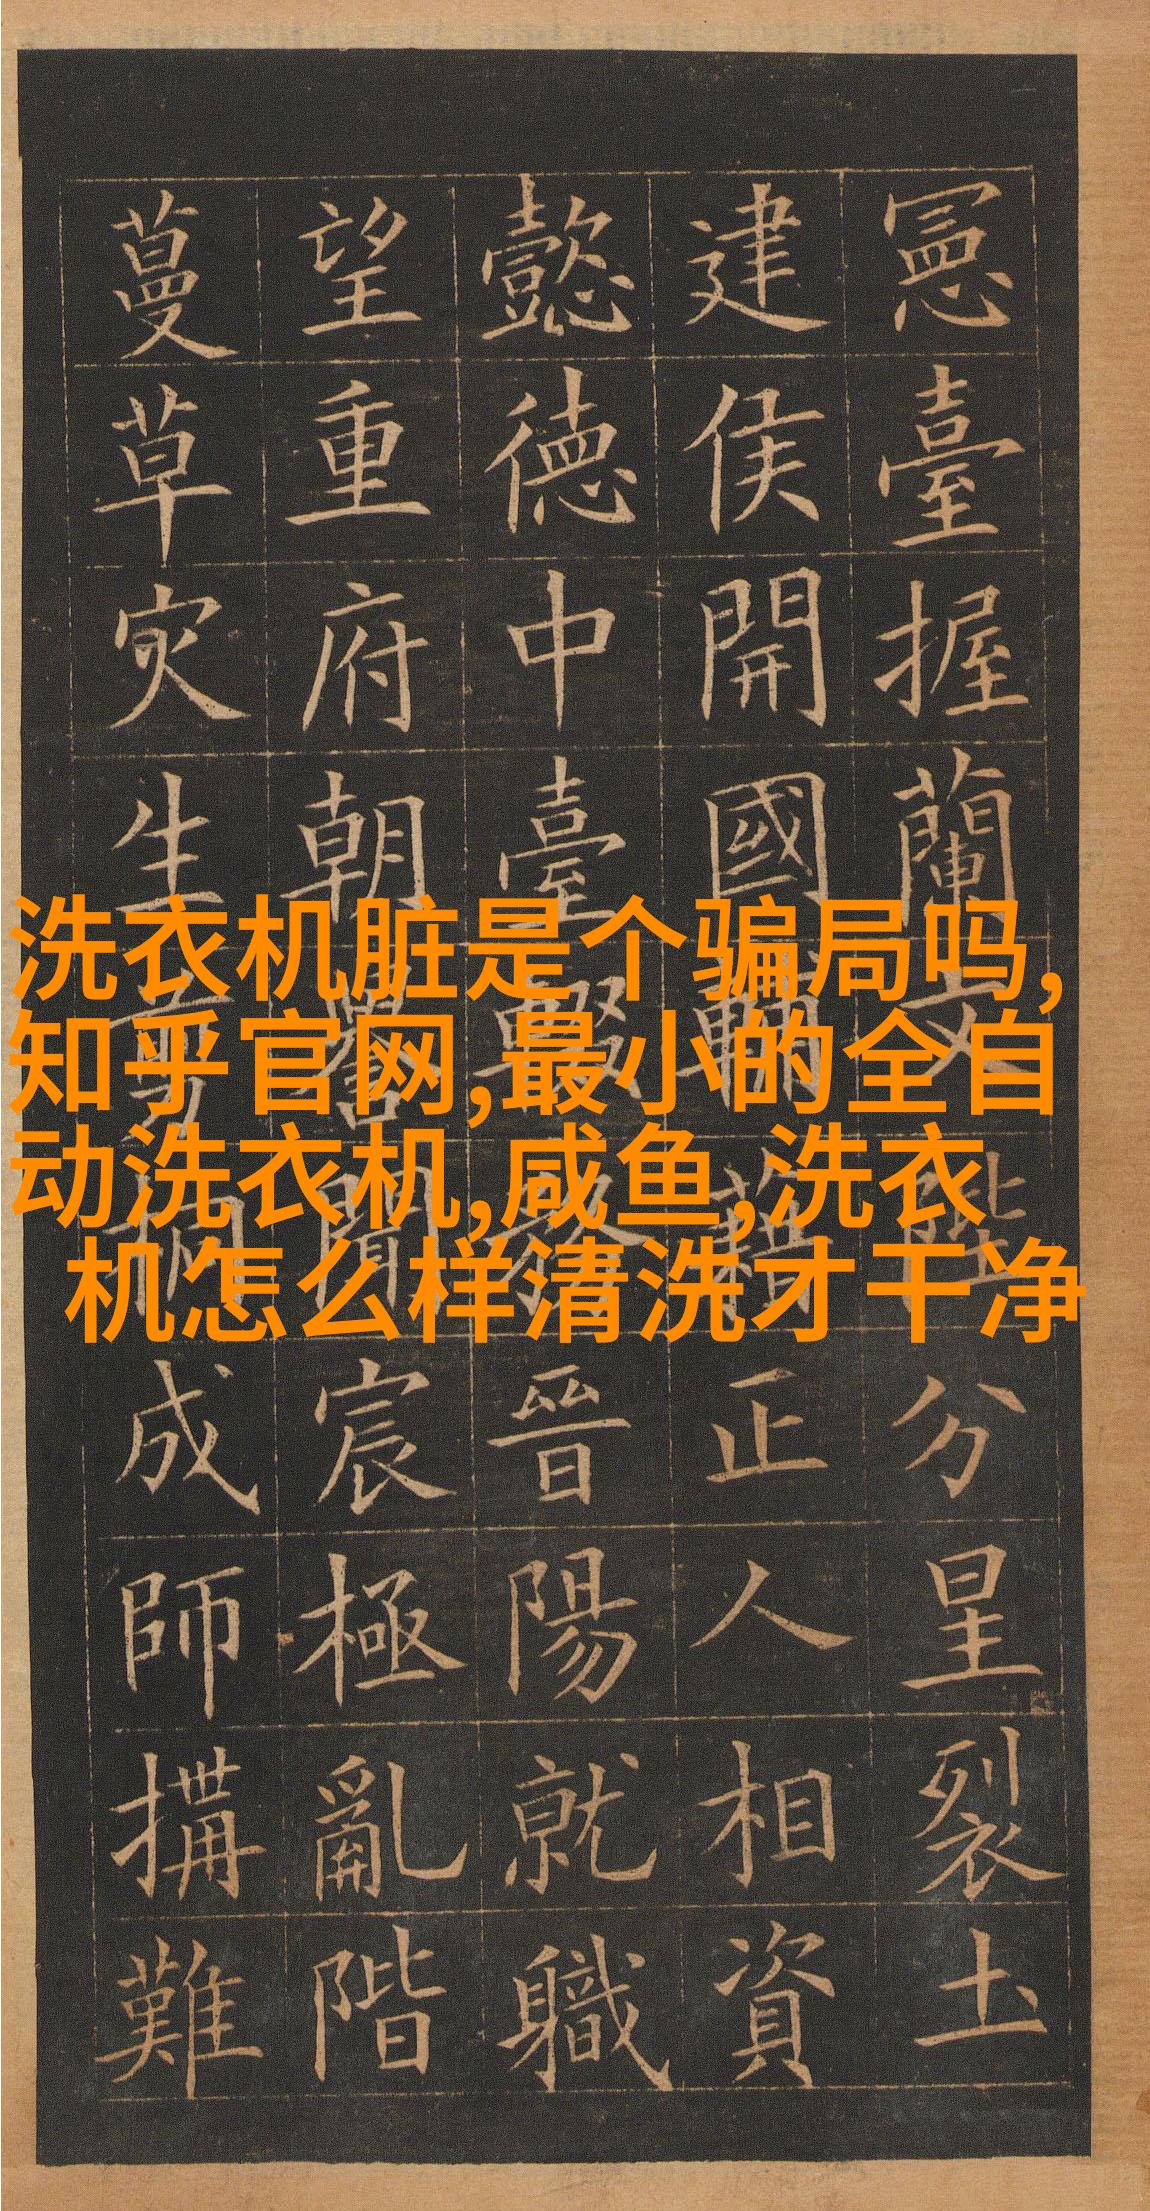 洗衣机脏是个骗局吗,
知乎官网,最小的全自
动洗衣机,咸鱼,洗衣
机怎么样清洗才干净
憲臺握蘭文陛分星裂土
建侯開國輔藉正人相資
懿德中臺輟務晉陽就職
望重府朝譽聞宸極亂階
蔓草灾生剪桐成師搆難